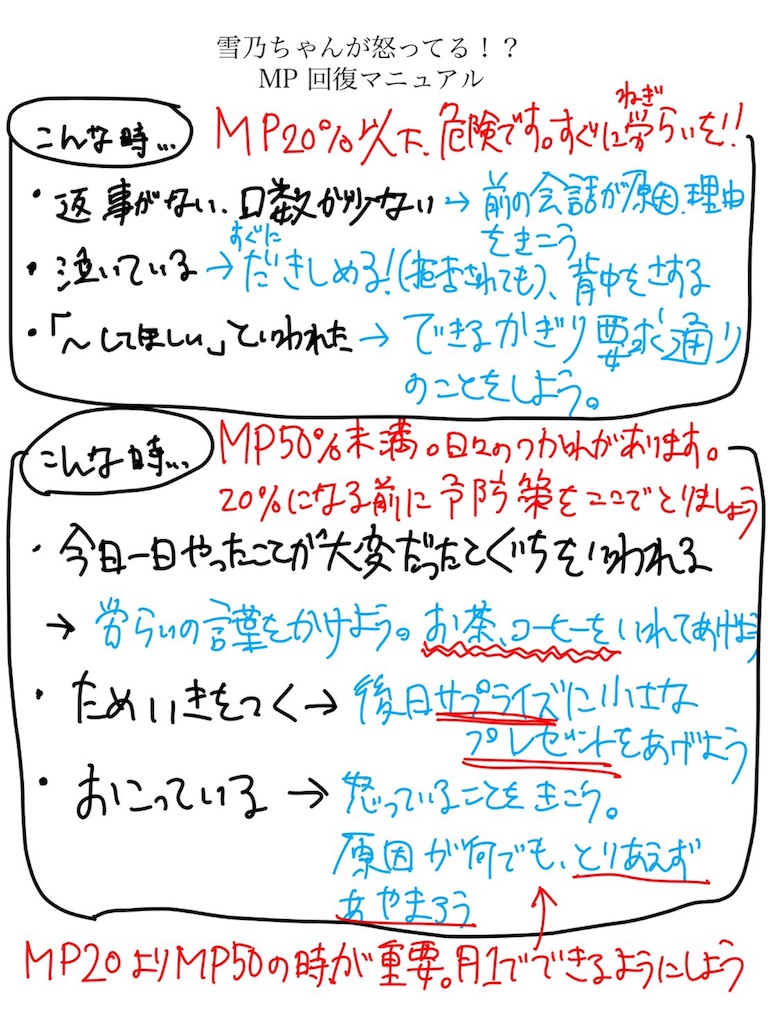 雪乃ちゃんが怒ってる！？
MP 回復マニュアル
こんな時…
MP20%以下、危険です。すぐに労らいを!!
ねぎ
・返事がない、口数が少ない→前の会話が原因、理由
をきこう
すぐに
・泣いている→だきしめる!(拒否されても)、背中をさする
・「〜してほしい」といわれた→できるかぎり要求通り
のことをしよう。
こんな時…
MP50%未満。日々のつかれがあります。
20%になる前に予防策をここでとりましょう
・今日一日やったことが大変だったとぐちをいわれる
→労らいの言葉をかけよう。お茶、コーヒーをいれてあげよう
・ためいきをつく→後日サプライズに小さな
プレゼントをあげよう
・おこっている→怒っていることをきこう。
原因が何でも、とりあえず
あやまろう
MP20よりMP50の時が重要。月1でできるようにしよう